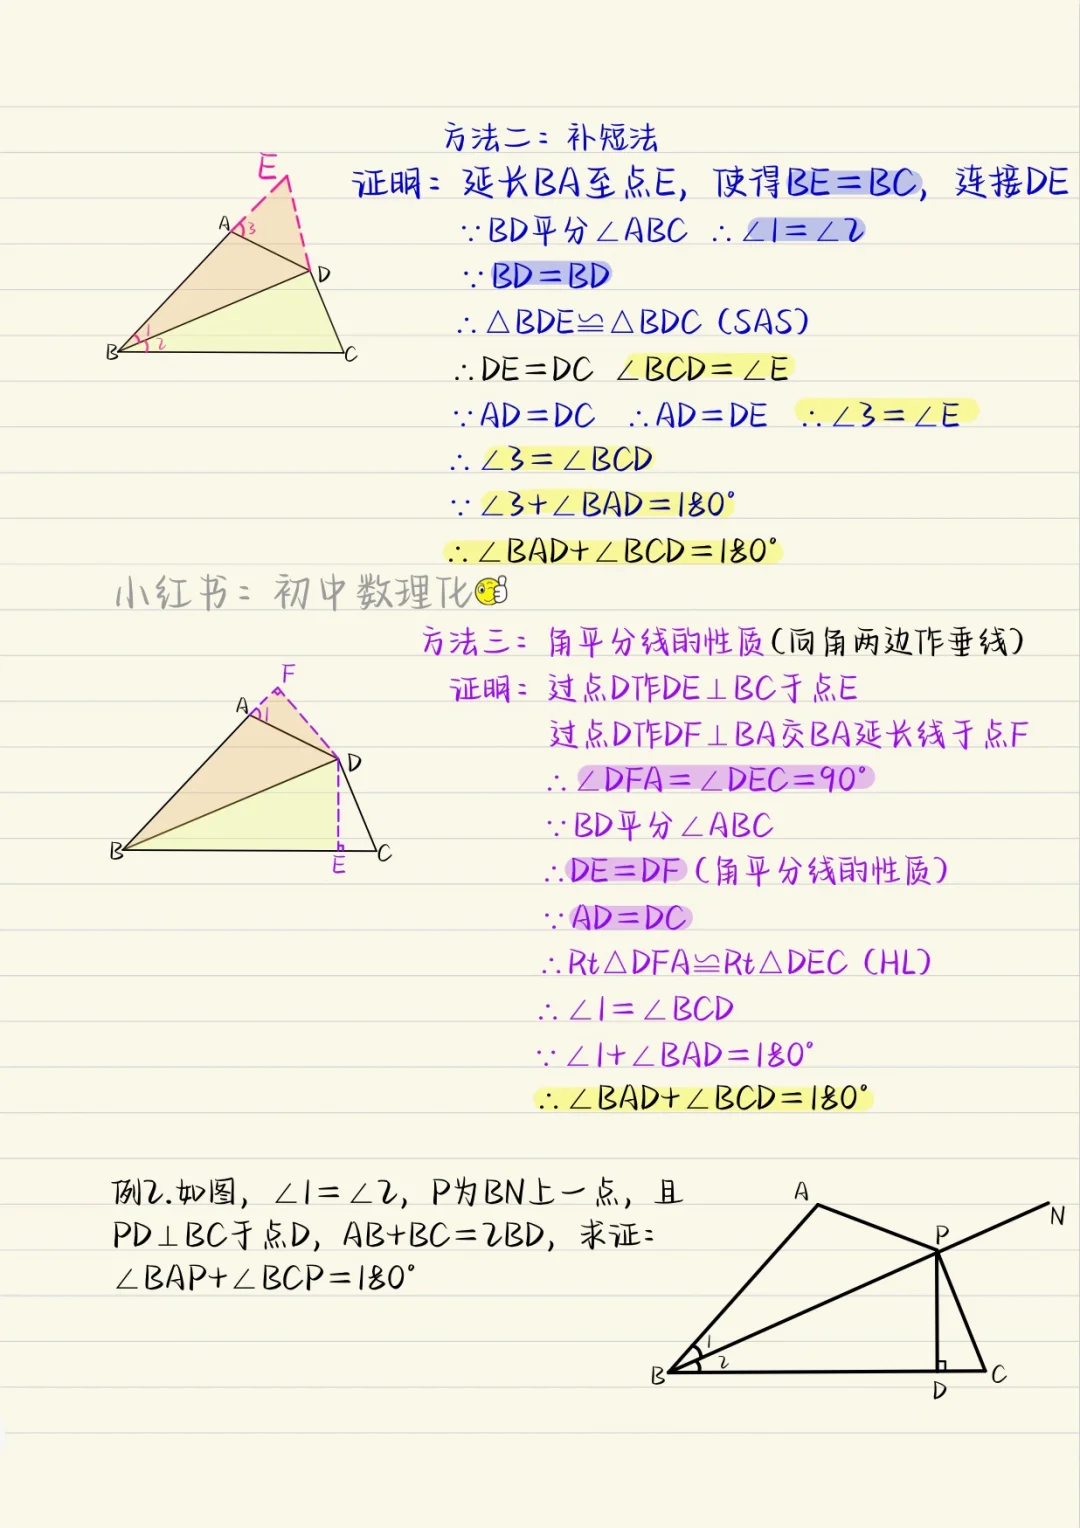 方法二：补短法
证明：延长BA至点E，使得BE=BC，连接DE
∵BD平分∠ABC ∴∠1=∠2
∵BD=BD
∴△BDE≌△BDC（SAS）
∴DE=DC ∠BCD=∠E
∵AD=DC ∴AD=DE ∴∠3=∠E
∴∠3=∠BCD
∵∠3+∠BAD=180°
∴∠BAD+∠BCD=180°
E
A
3
D
1
2
B
C
小红书：初中数理化
方法三：角平分线的性质（向角两边作垂线）
证明：过点D作DE⊥BC于点E
过点D作DF⊥BA交BA延长线于点F
∴∠DFA=∠DEC=90°
∵BD平分∠ABC
∴DE=DF（角平分线的性质）
∵AD=DC
∴Rt△DFA≌Rt△DEC（HL）
∴∠1=∠BCD
∵∠1+∠BAD=180°
∴∠BAD+∠BCD=180°
F
A
1
D
B
E
C
例2.如图，∠1=∠2，P为BN上一点，且
PD⊥BC于点D，AB+BC=2BD，求证：
∠BAP+∠BCP=180°
A
N
P
1
2
B
D
C